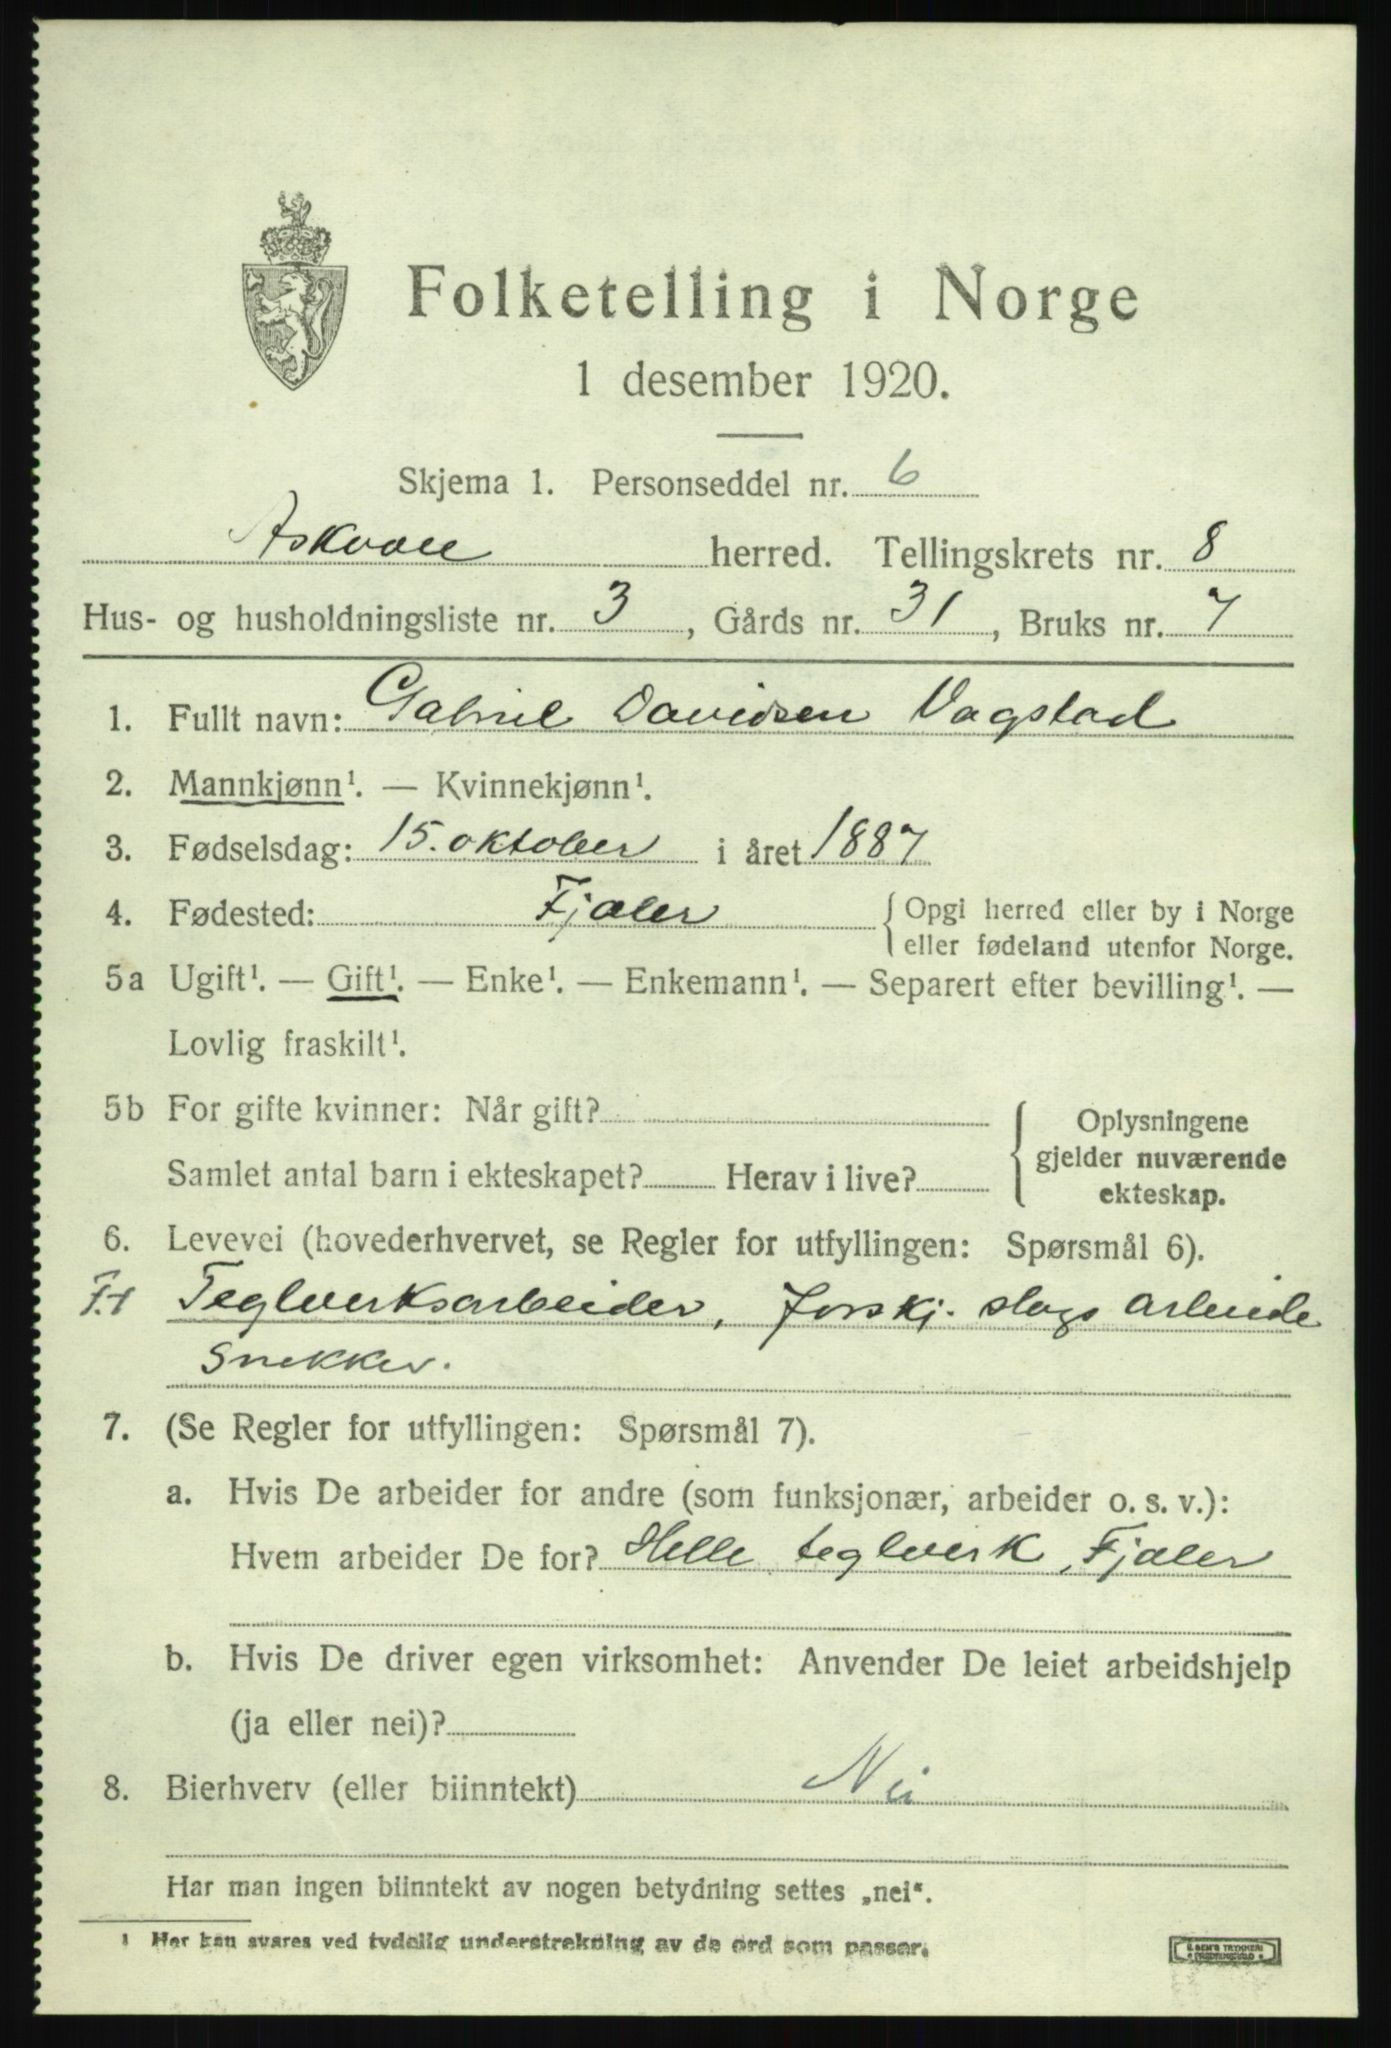 Folketelling i Norge
1 desember 1920.
Skjema 1. Personseddel nr. 6
Askvoll herred. Tellingskrets nr. 8
Hus- og husholdningsliste nr. 3, Gårds nr. 31, Bruks nr. 7
1. Fullt navn: Gabriel Davidsen Vagstad
2. Mannkjønn¹. — Kvinnekjønn¹.
3. Fødselsdag: 15. oktober i året 1887
4. Fødested: Fjaler { Opgi herred eller by i Norge
eller fødeland utenfor Norge.
5a Ugift¹. — Gift¹. — Enke¹. — Enkemann¹. — Separert efter bevilling¹. —
Lovlig fraskilt¹.
5b For gifte kvinner: Når gift?
Samlet antal barn i ekteskapet? Herav i live?
Oplysningene
gjelder nuværende
ekteskap.
6. Levevei (hovederhvervet, se Regler for utfyllingen: Spørsmål 6).
Teglverksarbeider, forskj. slags arbeide
Snekker.
7. (Se Regler for utfyllingen: Spørsmål 7).
a. Hvis De arbeider for andre (som funksjonær, arbeider o. s. v.):
Hvem arbeider De for? Helle teglverk, Fjaler
b. Hvis De driver egen virksomhet: Anvender De leiet arbeidshjelp
(ja eller nei)?
8. Bierhverv (eller biinntekt) Nei
Har man ingen biinntekt av nogen betydning settes „nei“.
¹ Her kan svares ved tydelig understrekning av de ord som passer.